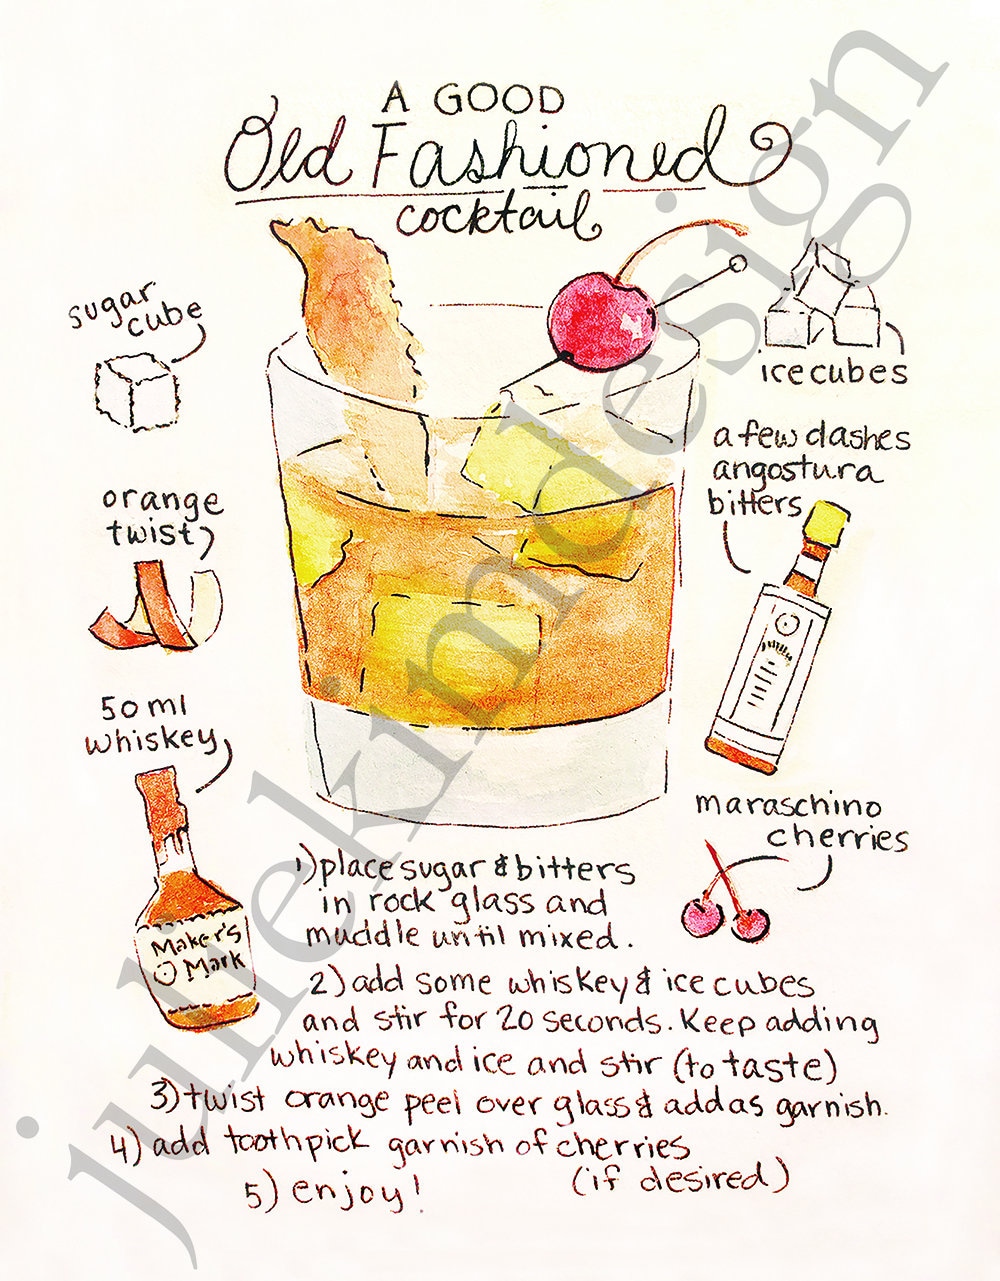 A GOOD
Old Fashioned
cocktail
sugar
cube
ice cubes
a few dashes
angostura
bitters
orange
twist
50 ml
whiskey
maraschino
cherries
Maker's
Mark
1) place sugar & bitters
in rock glass and
muddle until mixed.
2) add some whiskey & ice cubes
and stir for 20 seconds. Keep adding
whiskey and ice and stir (to taste)
3) twist orange peel over glass & add as garnish.
4) add toothpick garnish of cherries
(if desired)
5) enjoy!
juliekimdesign